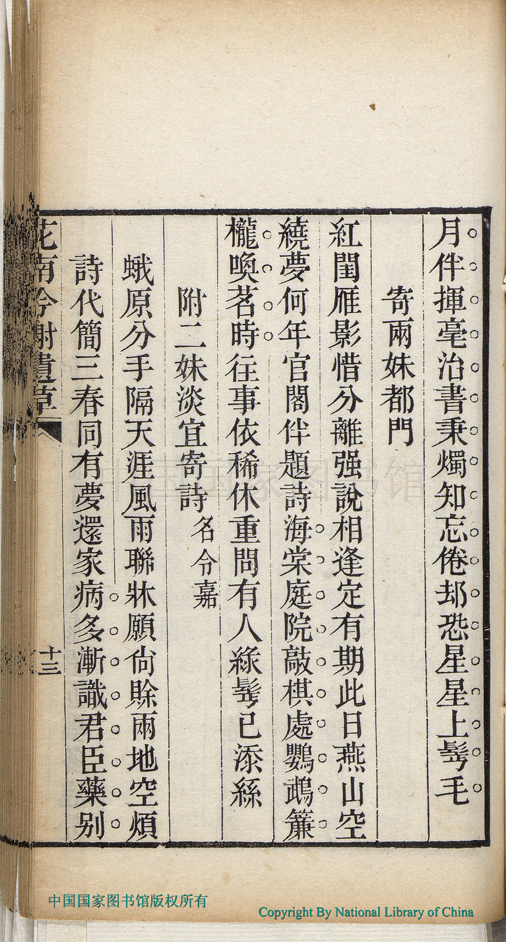 月伴揮毫治書秉燭知忘倦却恐星星上鬓毛
寄兩妹都門
紅閨雁影惜分離强說相逢定有期此日燕山空
繞夢何年官閣伴題詩海棠庭院敲棋處鸚鵡簾
櫳喚茗時往事依稀休重問有人綠鬓已添絲
附二妹淡宜寄詩名令嘉
蛾原分手隔天涯風雨聯牀願尙賒兩地空煩
詩代簡三春同有夢還家病多漸識君臣藥別
花南吟榭遺草
十三
中国国家图书馆
中国国家图书馆版权所有
Copyright By National Library of China